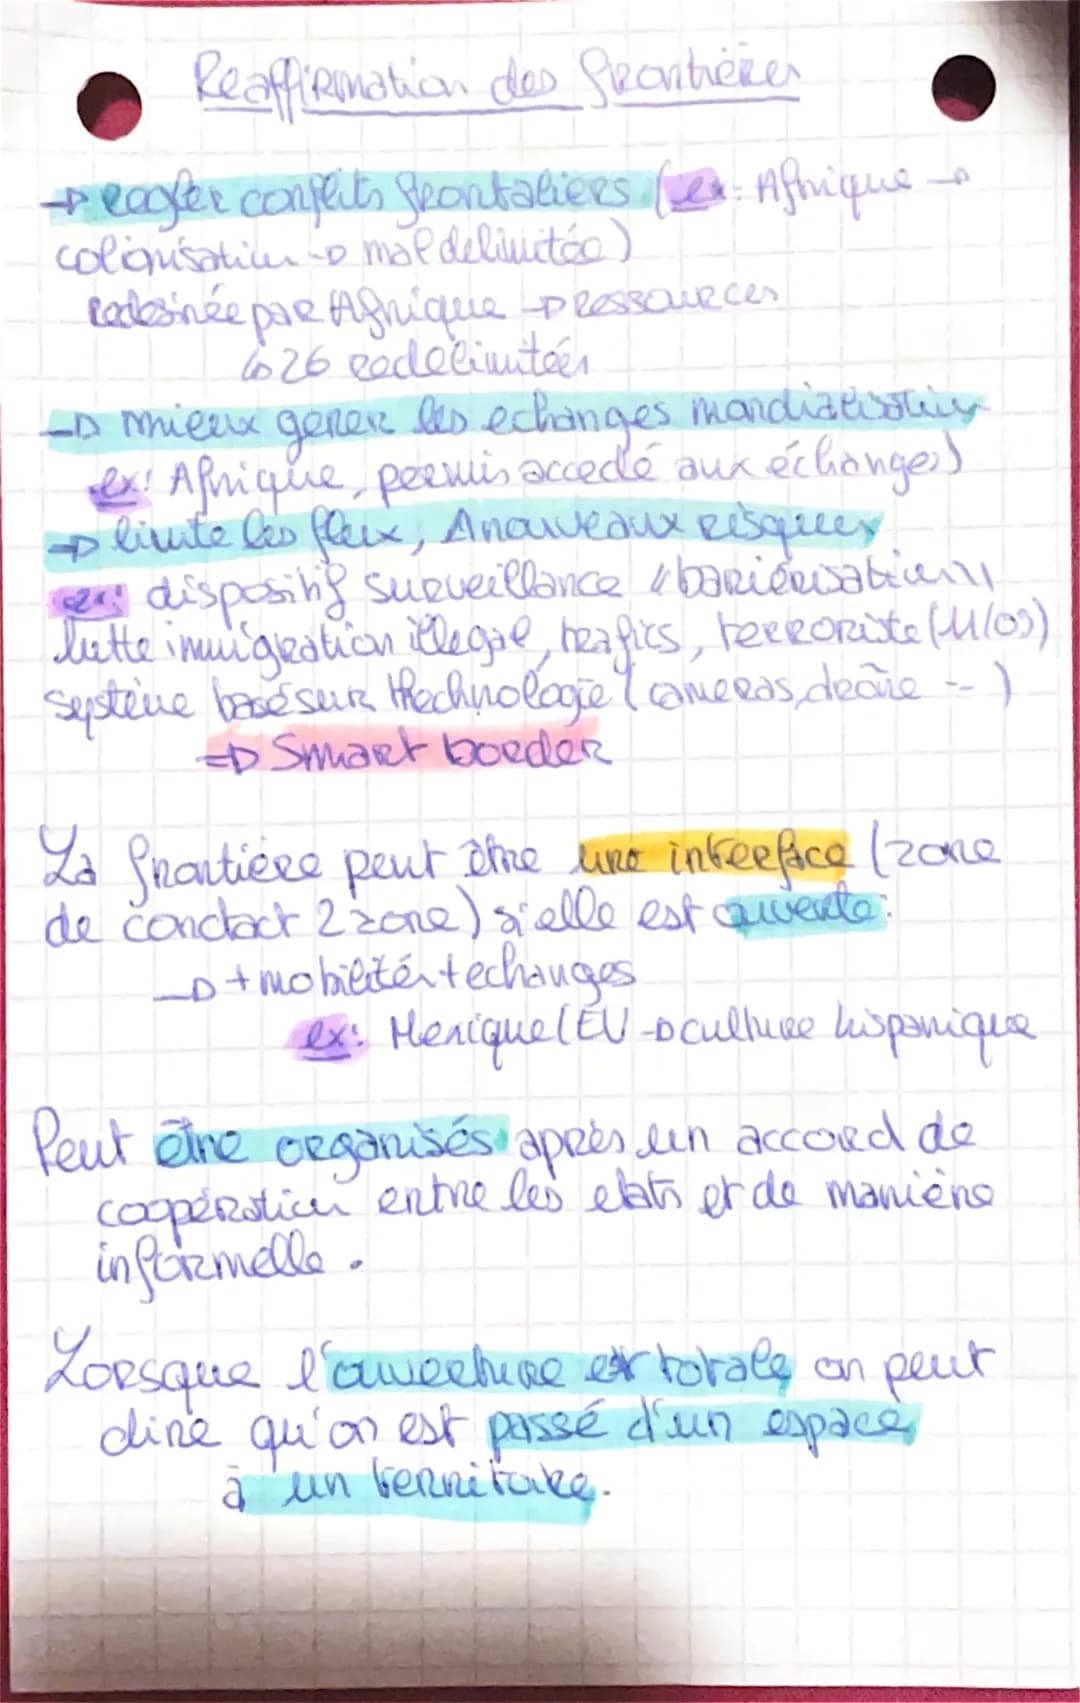 Réaffirmation des frontières
→ regler conflits frontaliers (ex: Afrique →
colonisation → mal delimitée)
redesinée par Afrique → ressources
↳ 26 redelimitées
→ mieux gerer les echanges mondialisation
ex: Afrique, permis accedé aux échanges)
→ limite les flux, nouveaux risques
ex: dispositif surveillance "bariérisation"
lutte immigration illegal, trafics, terroriste (11/09)
système basé sur technologie (cameras, drône --)
⇒ Smart border
La frontière peut être une interface (zone
de conctact 2 zone) si elle est ouverte:
→ + mobilités + echanges
ex: Mexique/EU → culture hispanique
Peut être organisés après un accord de
coopération entre les etats et de manière
informelle.
Lorsque l'ouverture est totale on peut
dire qu'on est passé d'un espace
à un territoire.